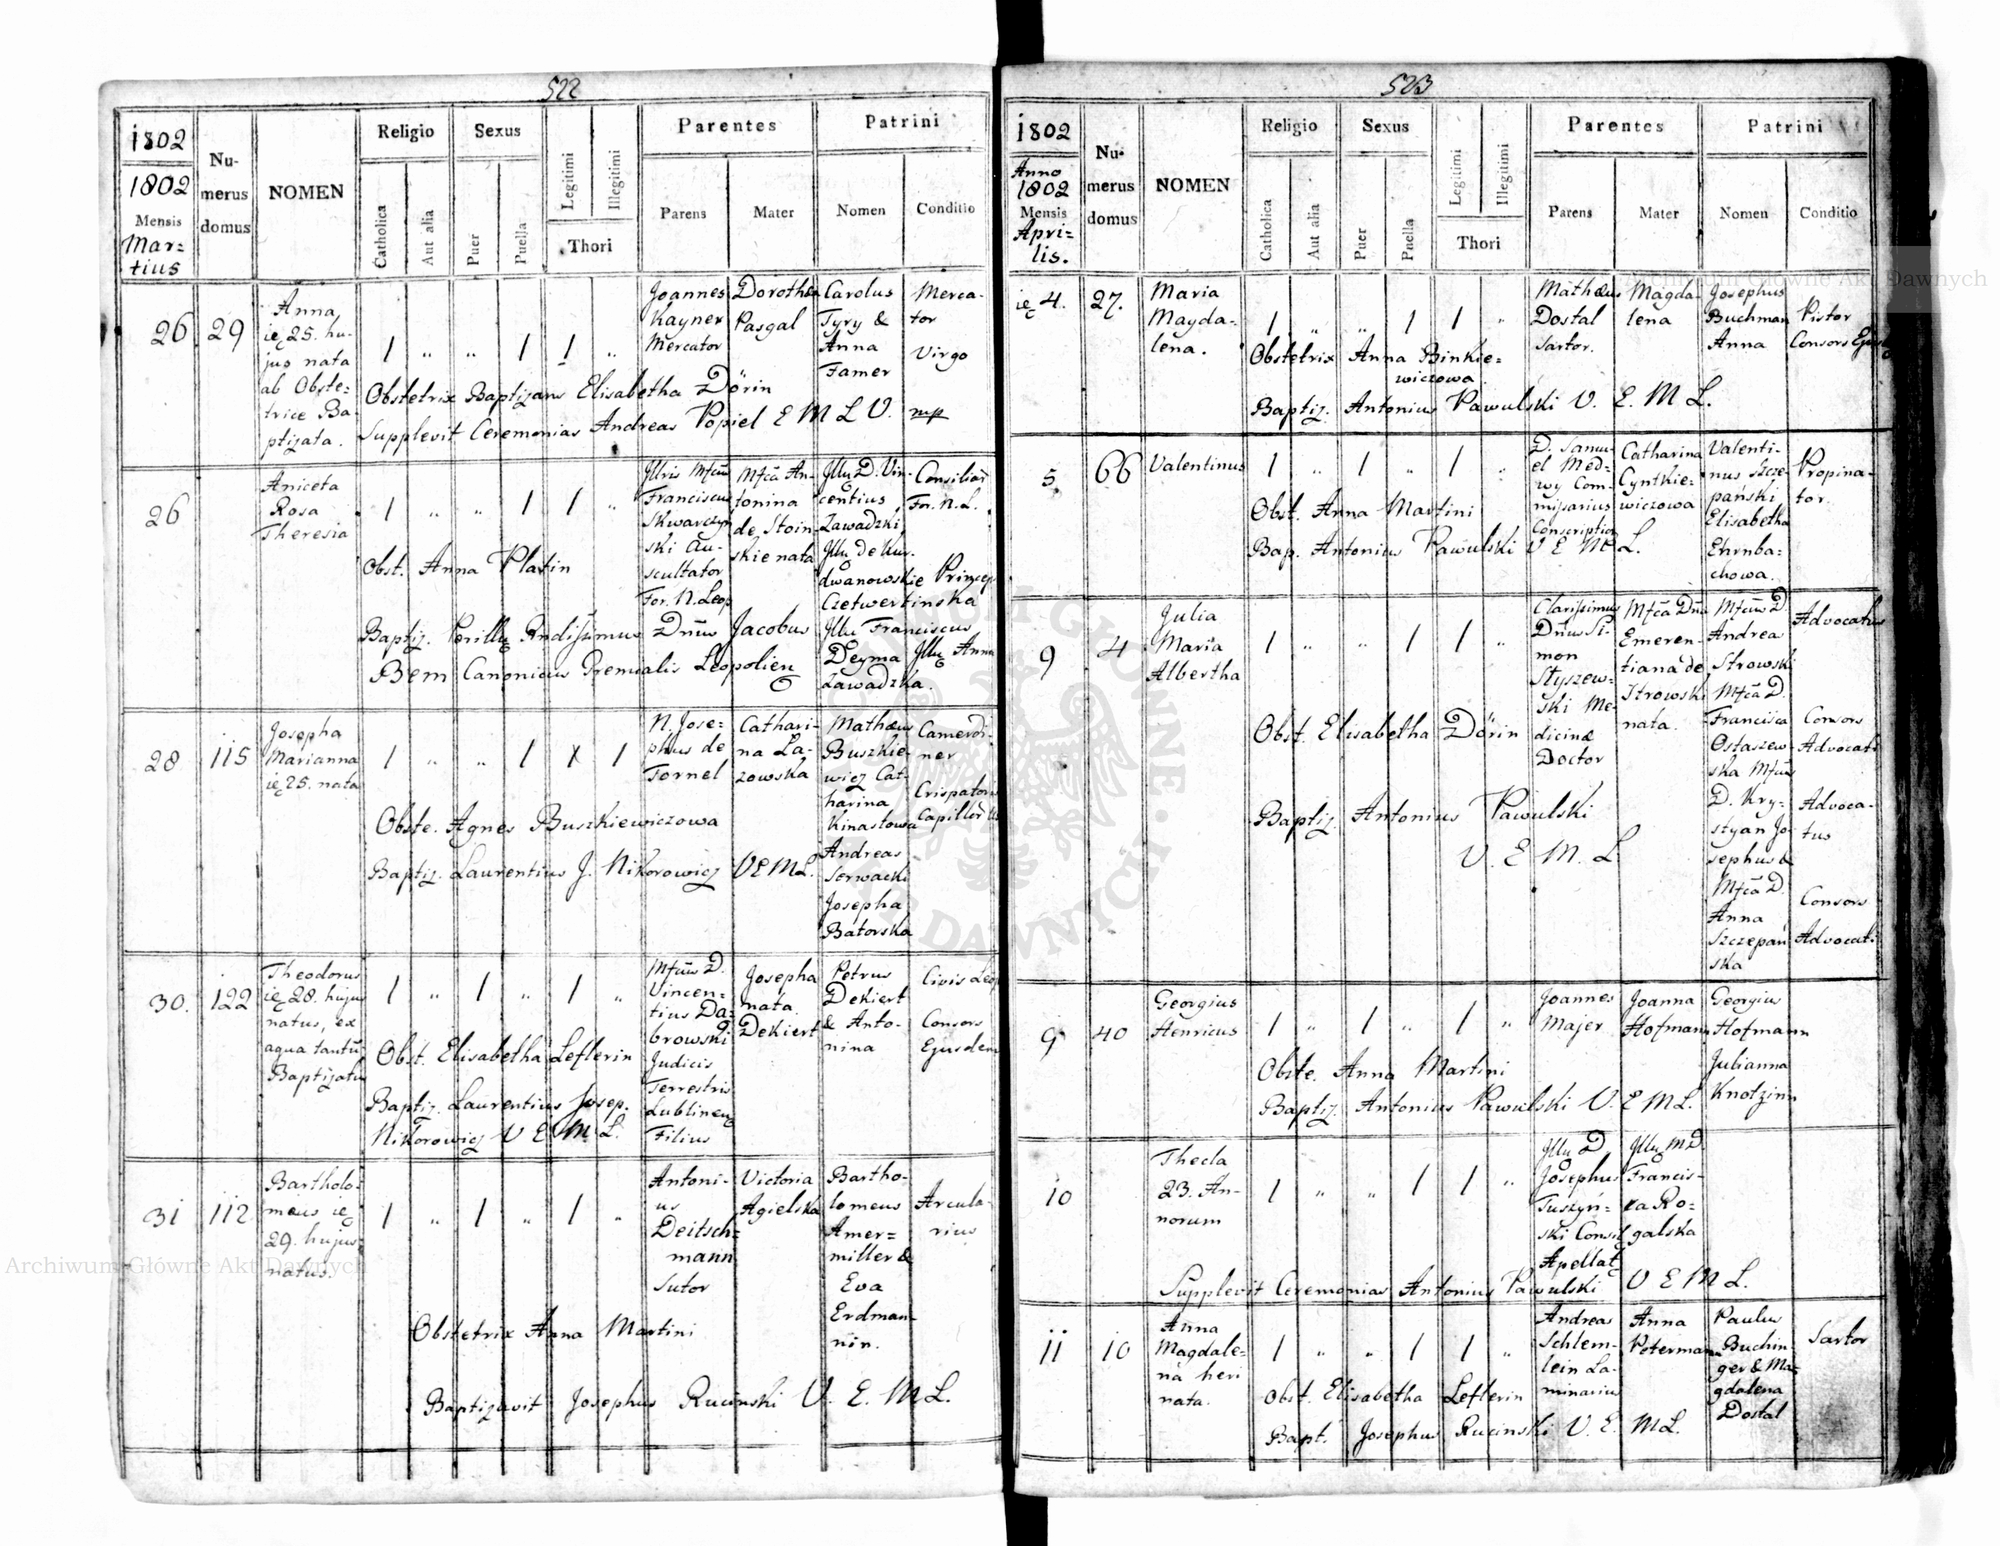 522
1802
1802
Mensis
Mar=
tius
Numerus
domus
NOMEN
Religio
Catholica
Aut alia
Sexus
Puer
Puella
Legitimi
Illegitimi
Thori
Parentes
Parens
Mater
Patrini
Nomen
Conditio
26
29
Anna
ię 25. hu-
jus nata
ab Obste=
trice Ba
ptizata.
/ „ „ / / „
Joannes
Kayner
Mercator
Dorothea
Pasgal
Carolus
Tyry &
Anna
Famer
Merca-
tor
Virgo
Obstetrix Baptizans Elisabetha Dörin
Supplevit Ceremonias Andreas Popiel E M L V. mp
26
Aniceta
Rosa
Theresia
/ „ „ / / „
Franciscus
Skwarczyn
ski Au-
scultator
For. N. Leop
Mfcā An-
tonina
de Stoin
skie nata
D. Vin-
centius
Zawadzki
dwanowskie
Czetwertinska
Franciscus
Deyma
Zawadzka.
Consiliar
For. N. L.
Princep
Anna
Obst. Anna Platin
Baptiz. Dnus Jacobus
Bem Canonicus Premialis Leopolien
28
115
Josepha
Marianna
ię 25. nata
/ „ „ / x /
N. Jose=
phus de
Tornel
Cathari-
na La-
zowska
Mathæus
Buszkie-
wicz Cat-
harina
Kinastowa
Andreas
Serwacki
Josepha
Batorska
Camerdi-
ner
Crispatoris
Capillor
Obste. Agnes Buszkiewiczowa
Baptiz. Laurentius J. Nikorowicz V E M L.
30.
122
Theodorus
ię 28. hujus
natus, ex
aqua tantū
Baptizatu
/ „ / „ / „
Mfcus D.
Vincen=
tius Da=
browski
Judicis
Terrestris
Lublinen
Filius
Josepha
nata
Dekiert
Petrus
Dekiert
& Anto-
nina
Civis Leop
Consors
Ejusdem
Obst. Elisabetha Leflerin
Baptiz. Laurentius Josep.
Nikorowicz V E M L.
31
112
Bartholo-
mæus ię
29. hujus=
natus.
/ „ / „ / „
Antoni-
us
Deitsch=
mann
Sutor
Victoria
Agielska
Bartho-
lomeus
Amer=
miller &
Eva
Erdman-
nin.
Arcula-
rius
Obstetrix Anna Martini
Baptizavit Josephus Rucinski V. E. M L.
523
1802
Anno
1802
Mensis
Apri=
lis.
Numerus
domus
NOMEN
Religio
Catholica
Aut alia
Sexus
Puer
Puella
Legitimi
Illegitimi
Thori
Parentes
Parens
Mater
Patrini
Nomen
Conditio
ię 4.
27.
Maria
Magda-
lena.
/ „ „ / / „
Mathæus
Dostal
Sartor.
Magda-
lena
Josephus
Buchman
Anna
Pistor
Consors Ejusd
Obstetrix Anna Binkie=
wiczowa
Baptiz. Antonius Pawulski V. E. M L.
5
66
Valentinus
/ „ / „ / „
D. Samu-
el Med=
wy Com-
misarius
Conscriptio
Catharina
Cyntkie=
wiczowa
Valenti-
nus Szcze-
pański
Elisabetha
Ehrnba-
chowa.
Propina-
tor.
Obst. Anna Martini
Bap. Antonius Pawulski V E M L.
9
4
Julia
Maria
Albertha
/ „ „ / / „
Clarissimus
Dnus Si-
mon
Styszew-
ski Me-
dicinæ
Doctor
Mfca Dna
Emeren-
tiana de
Strowski
nata.
Mfcus D.
Andrea
Strowski
Mfca D.
Francisca
Ostaszew-
ska Mfcus
D. Kry-
styan Jo
sephus &
Mfca D.
Anna
Szczepan
ska
Advocatus
Consors
Advocati
Advoca-
tus
Consors
Advocati
Obst. Elisabetha Dörin
Baptiz. Antonius Pawulski
V. E. M. L.
9
40
Georgius
Henricus
/ „ / „ / „
Joannes
Majer
Joanna
Hofmann
Georgius
Hofmann
Julianna
Knotzinn
Obste. Anna Martini
Baptiz. Antonius Pawulski V. E M L.
10
Thecla
23. An-
norum
/ „ „ / / „
D
Josephus
Tuszyń-
ski Consil
Apellat
M D.
Francis-
ca Ro-
galska
Supplevit Ceremonias Antonius Pawulski V E M L.
11
10
Anna
Magdale=
na heri
nata.
/ „ „ / / „
Andreas
Schlem-
lein La-
minarius
Anna
Peterman
Paulus
Buchin-
ger & Ma-
gdalena
Dostal
Sartor
Obst. Elisabetha Leflerin
Bapt. Josephus Rucinski V. E. M L.
Archiwum Główne Akt Dawnych
Archiwum Główne Akt Dawnych